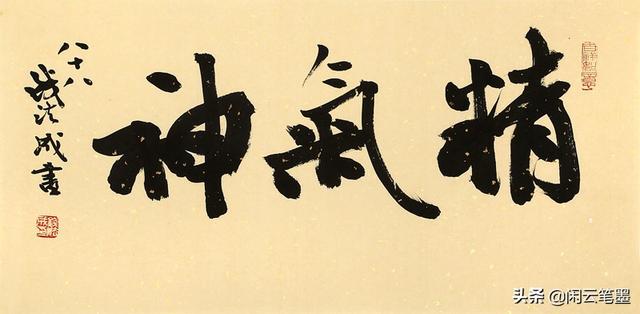 精氣神
八十八
戏法成書
头条 @闲云笔墨